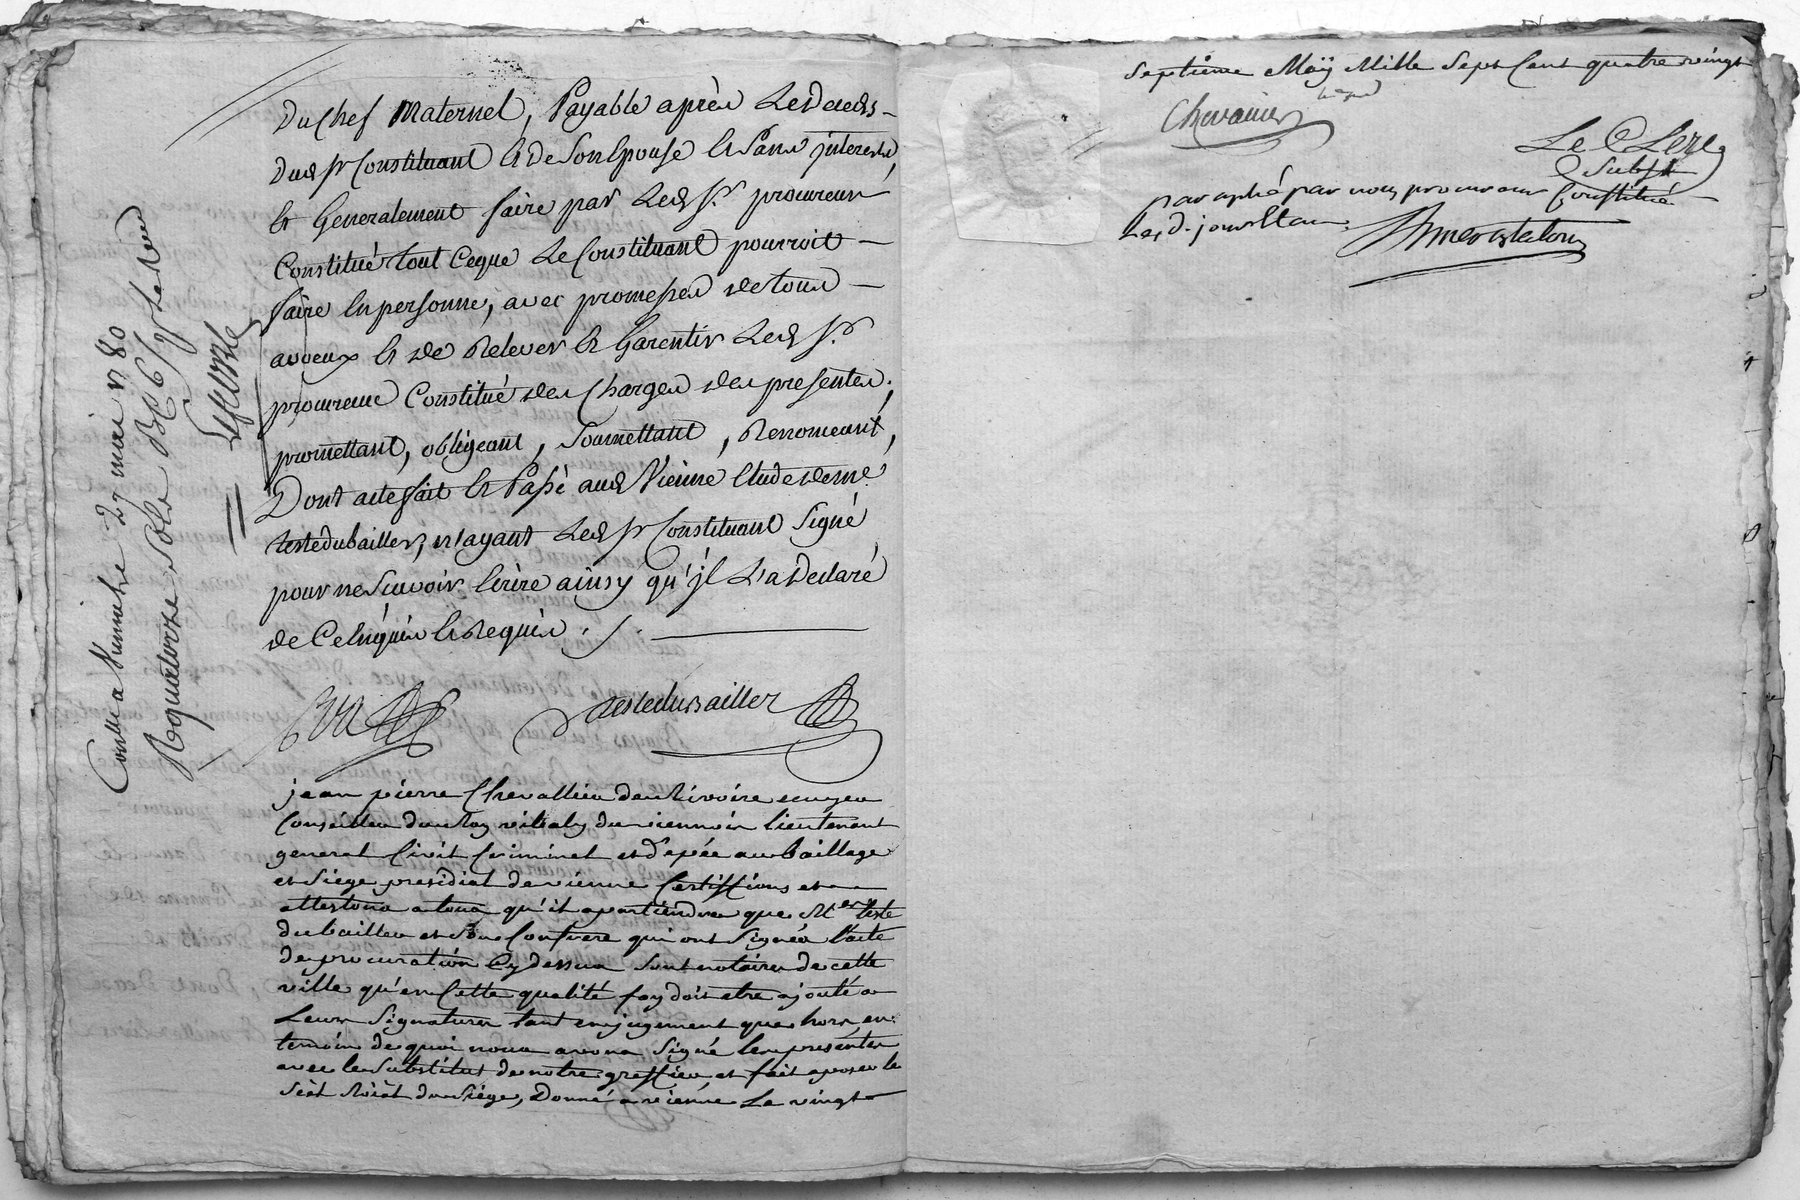 Du Chef Maternel, Payable après Le decedz
dud sr Constituant & de Son Epouse & Sans interets,
& Generalement faire par Led sr procureur
Constitué tout Ceque Le Constituant pourroit
faire En personne, avec promesses de tous
aveux & de Relever & Garentir Led sr
procureur Constitué des Charges des presentes;
promettant, obligeant, Soumettant, Renonceant,
Dont acte fait & Passé aud Vienne Etude de me
testedubailler, n'ayant Led sr Constituant Signé
pour ne Scavoir Ecrire ainsy qu'jl L'a Declaré
de Ce Enquis & Requis ./.
testedubailler
Conlle a Vienne le 27 mai 1780
Rs quatorze sols
jean pierre Chevallier de Rivoire ecuyer
Conseiller du Roy vibaly du viennois lieutenant
general Civil Criminel et d'epée au bailliage
et siege presidial de vienne Certiffions et
attestons a tous qu'il apartiendra que Me teste
du bailler et Son Confrere qui ont signés l'acte
de procuration Cy dessus sont notaires de cette
ville qu'en Cette qualité foy doit etre ajouté a
Leurs signatures tant en jugement que hors, en
temoin de quoi nous avons signé les presentes
avec le substitut de notre greffier et fait aposer le
scel Roial du siége, Donné a vienne Le vingt
Septieme Maÿ Mille Sept Cent quatre vingt
Chevalier
Le Clerc
Subst
paraphé par nous procureur Constitué
Led. jour & an